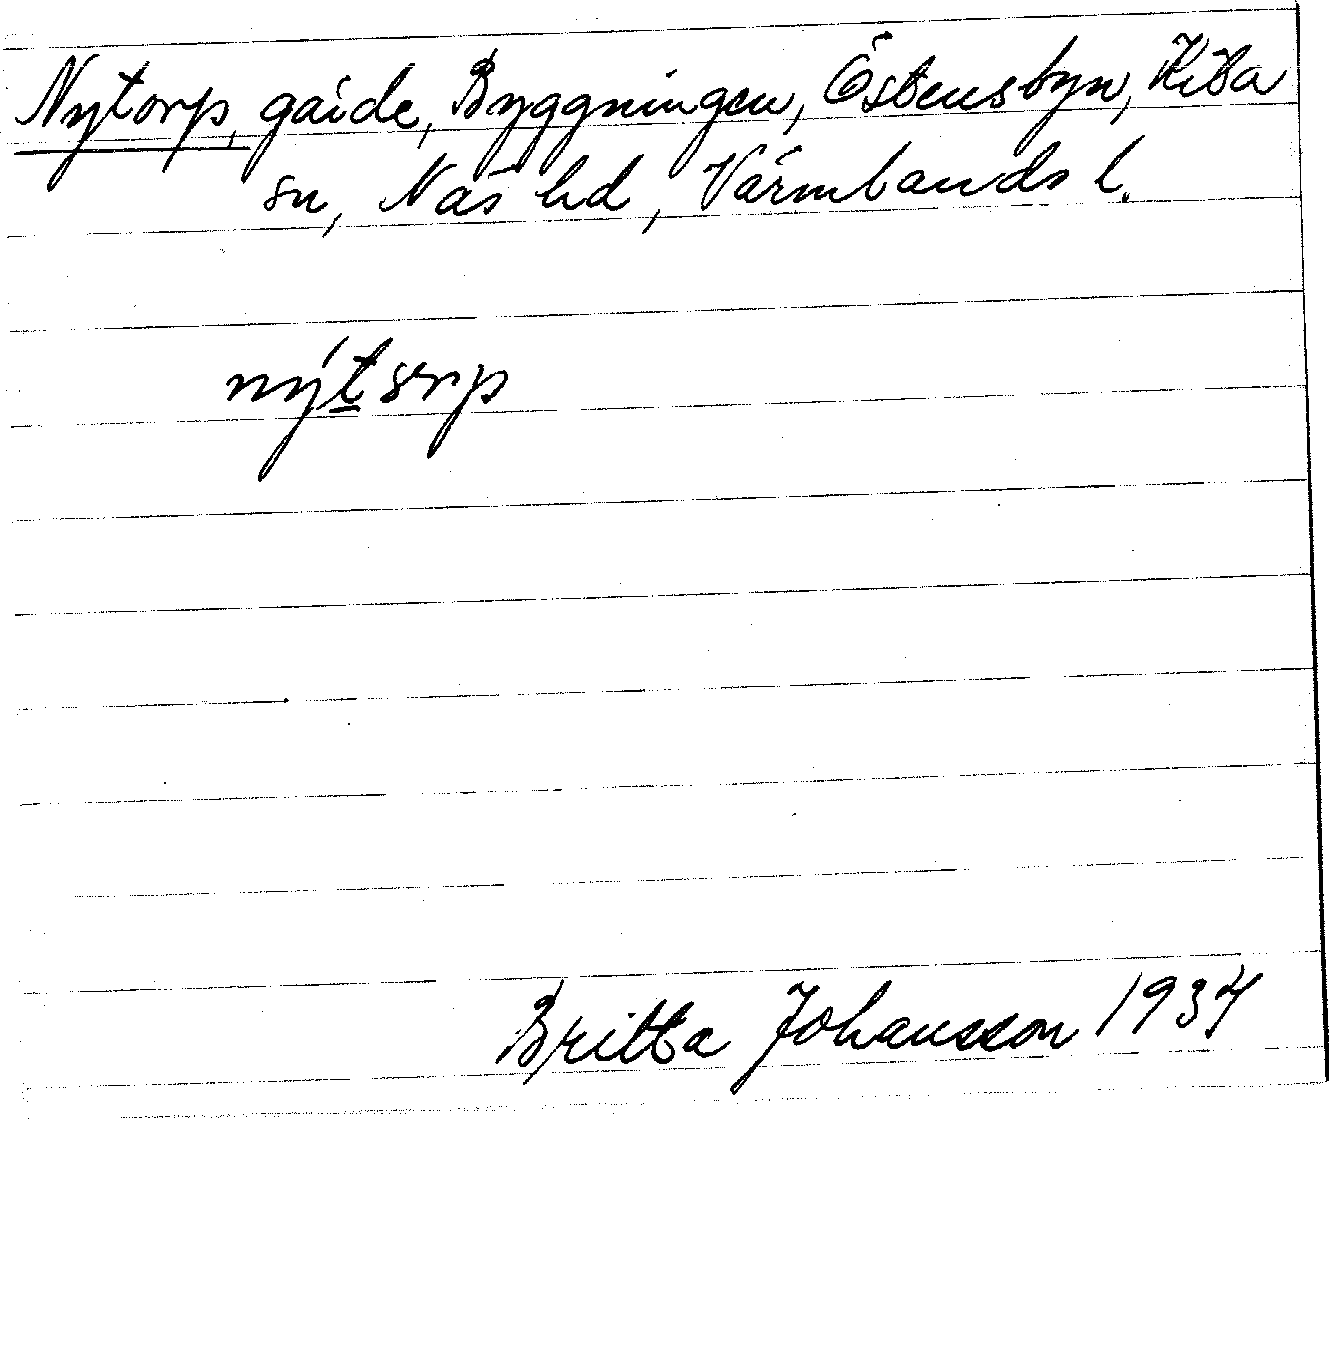 Nytorp, gärde, Byggningen, Östensbyn, Kila
sn, Näs hd, Värmlands l.
nýtorp
Britta Johansson 1934